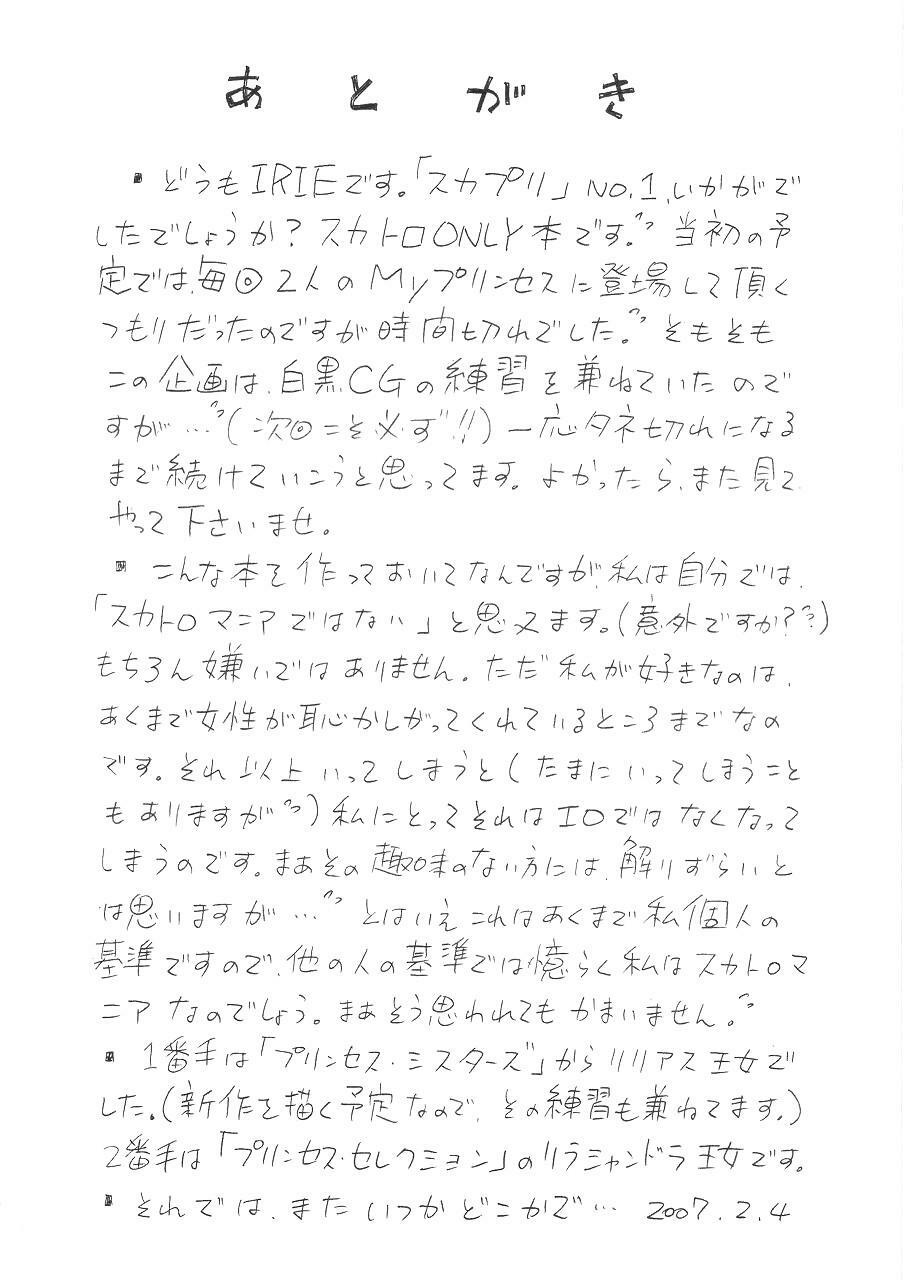 あとがき
▪どうもIRIEです。「スカプリ」NO.1、いかがで
したでしょうか?スカトロONLY本です。〃当初の予
定では、毎回2人のMyプリンセスに登場して頂く
つもりだったのですが時間切れでした。〃そもそも
この企画は、白黒CGの練習を兼ねていたので
すが…〃(次回こそ必ず!!)一応タネ切れになる
まで続けていこうと思ってます。よかったら、また見て
やって下さいませ。
▪こんな本を作っておいてなんですが、私は自分では、
「スカトロマニアではない」と思ってます。(意外ですか??)
もちろん嫌いではありません。ただ私が好きなのは、
あくまで女性が恥かしがってくれているところまでなの
です。それ以上いってしまうと(たまにいってしまうこと
もありますが〃)私にとってそれはエロではなくなって
しまうのです。まぁその趣味のない方には、解りずらいと
は思いますが…〃とはいえこれはあくまで私個人の
基準ですので、他の人の基準では憶らく私はスカトロマ
ニアなのでしょう。まぁそう思われてもかまいません。〃
▪1番手は「プリンセス・ミスターズ」からリリアス王女で
した。(新作を描く予定なので、その練習も兼ねてます。)
2番手は「プリンセス・セレクション」のリラシャンドラ王女です。
▪それでは、またいつかどこかで… 2007.2.4